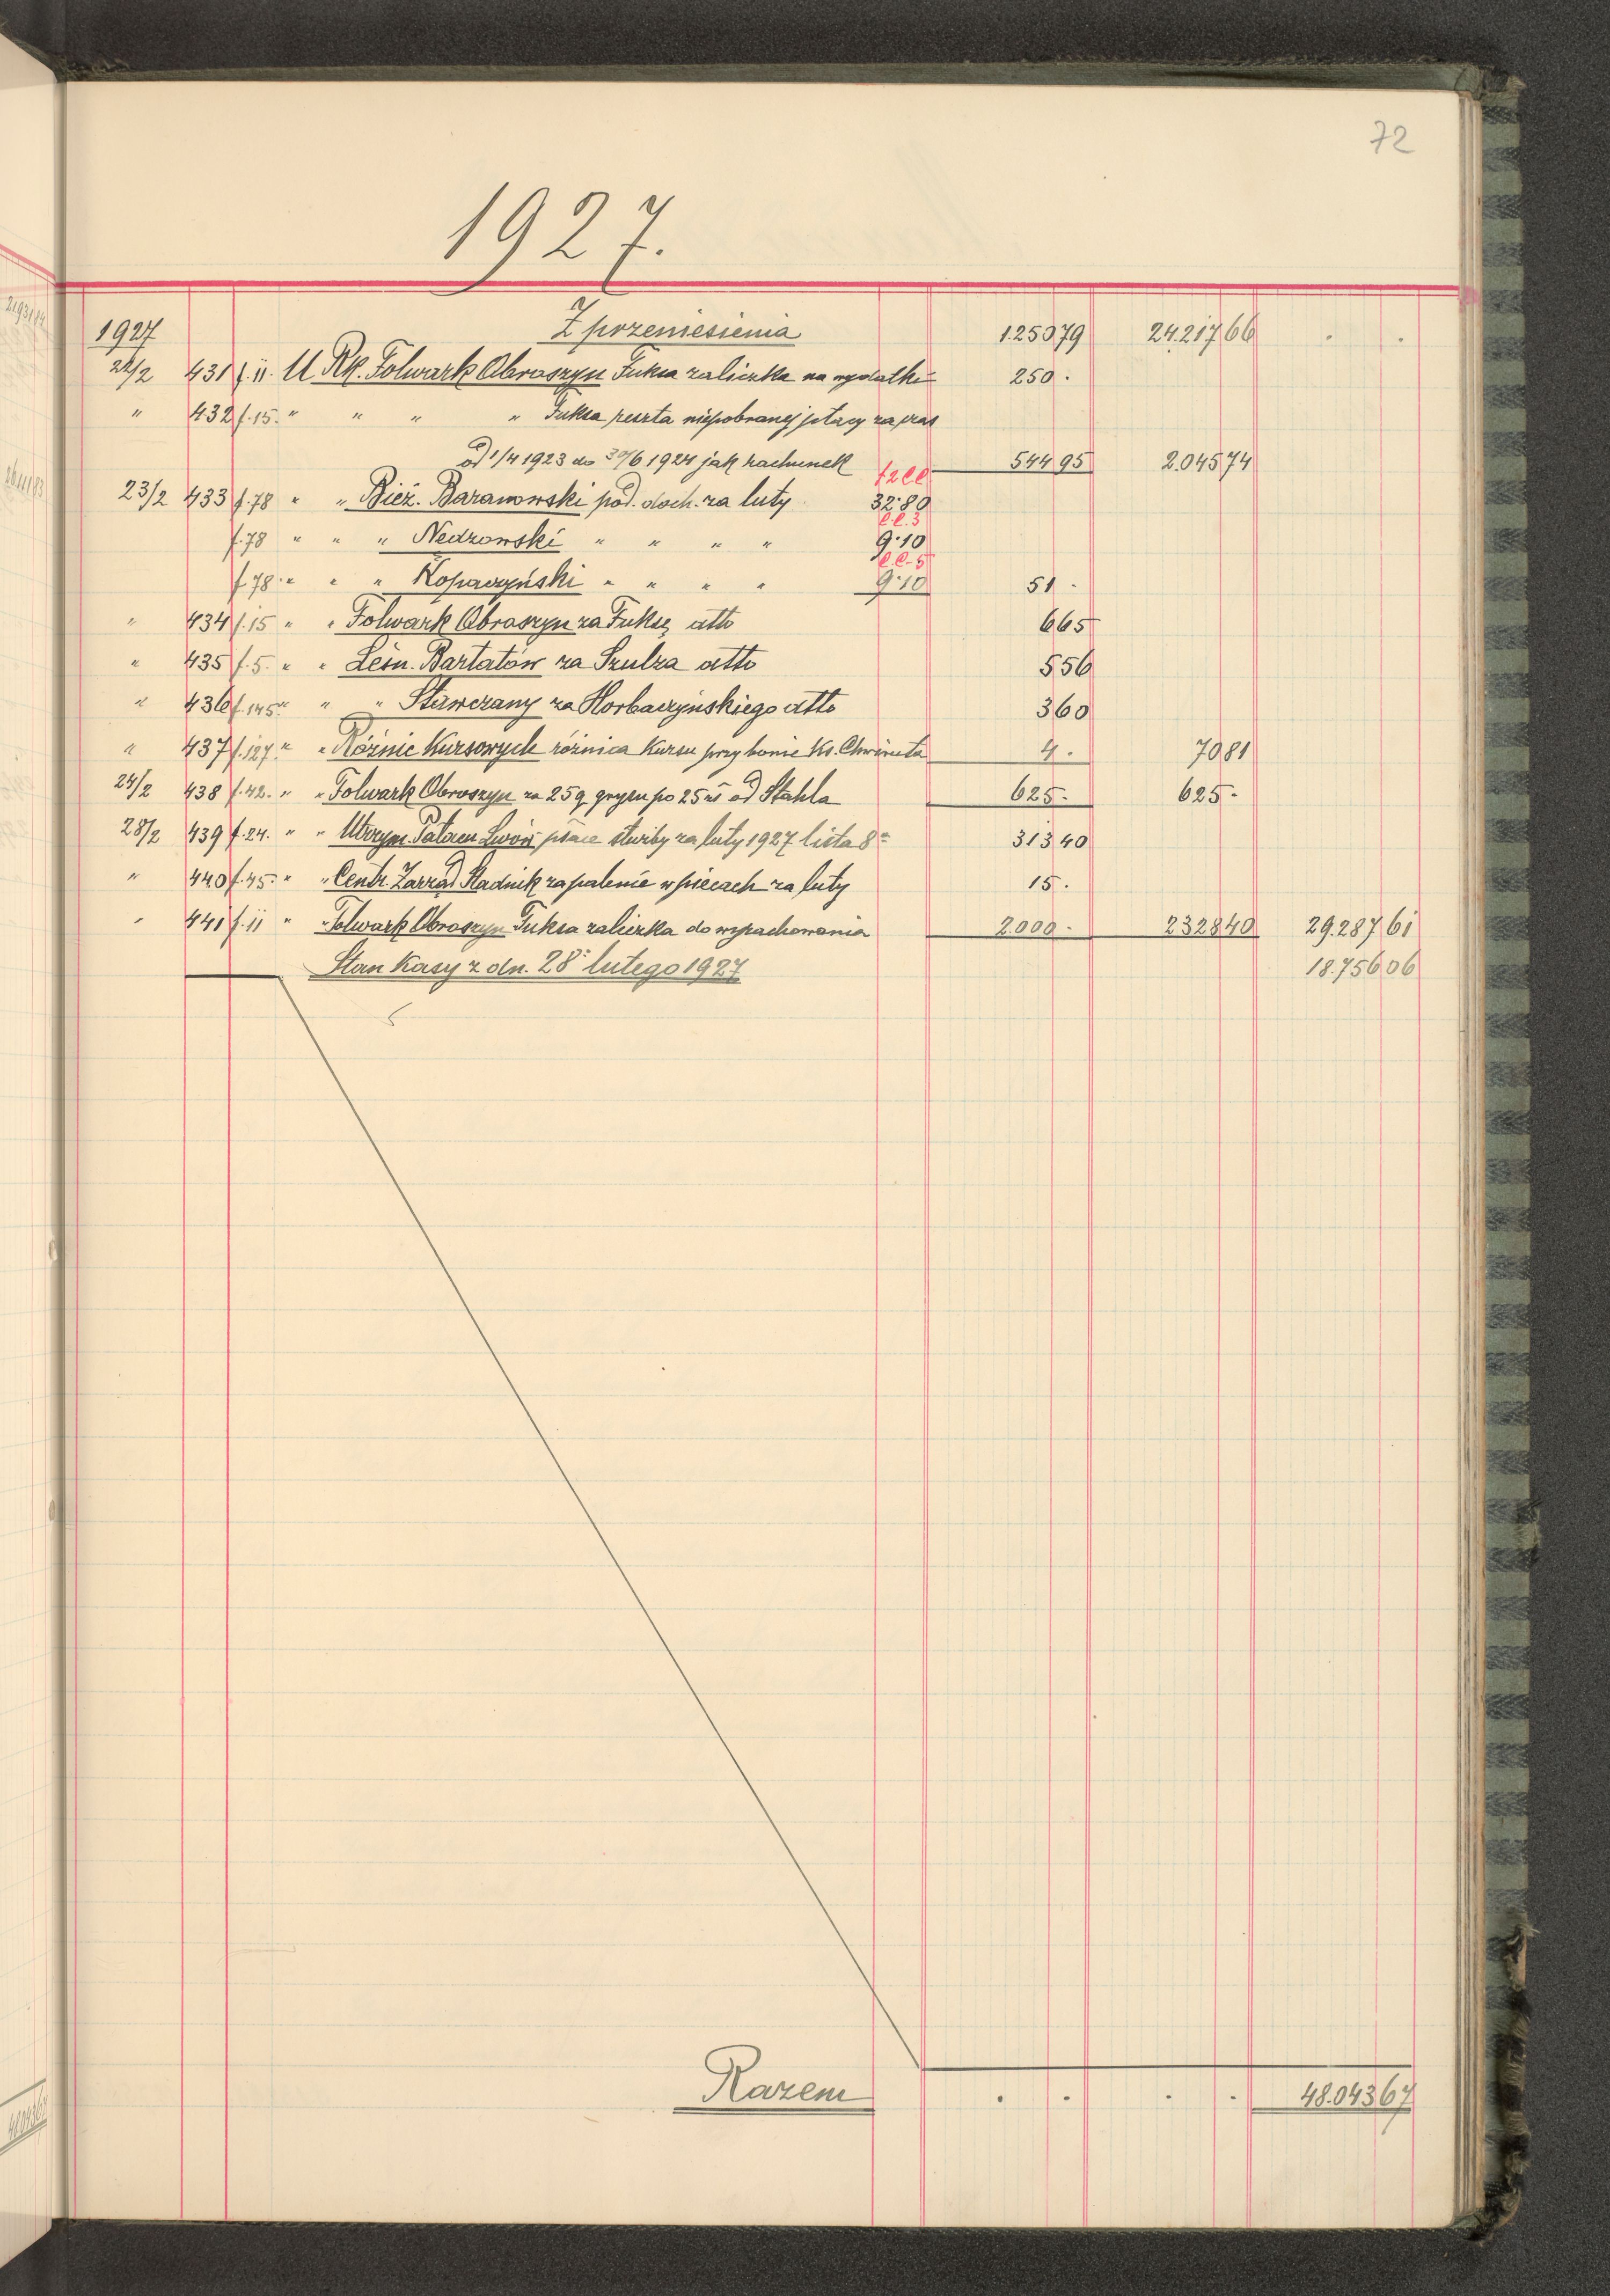 72
1927.
1927 Z przeniesienia 1.250 79 24.217 66 . .
22/2 431 f. 11. U Rk. Folwark Obroszyn Fuksa zaliczka na wydatki 250 .
" 432 f. 15. " " " " Fuksa reszta niepobranej płacy za czas
od 1/4 1923 do 30/6 1924 jak rachunek 544 95 2.045 74
23/2 433 f. 78 " " Bież. Baranowski pod. doch. za luty 32.80
f. 78 " " " Nedzowski " " " " 9.10
f. 78 " " " Koparzyński " " " " 9.10 51 .
" 434 f. 15 " " Folwark Obroszyn za Fuksę dtto 6 65
" 435 f. 5. " " Leśn. Bartatów za Szulza dtto 5 56
" 436 f. 145 " " " Stawczany za Horbaczyńskiego dtto 3 60
" 437 f. 127 " " Różnic Kursowych różnica kursu przy bonie Ks. Chwiruta 4 . 70 81
24/2 438 f. 42. " " Folwark Obroszyn za 25 q grysu po 25 zł od Stahla 625 . 625 .
28/2 439 f. 24. " " Utrzym. Pałacu Lwów płace służby za luty 1927 lista 8 313 40
" 440 f. 45. " " Centr. Zarząd Stadnik za palenie w piecach za luty 15 .
" 441 f. 11 " " Folwark Obroszyn Fuksa zaliczka do wyrachowania 2.000 . 2328 40 29.287 61
Stan Kasy z dn. 28 lutego 1927 18.756 06
Razem . . . . 48.043 67